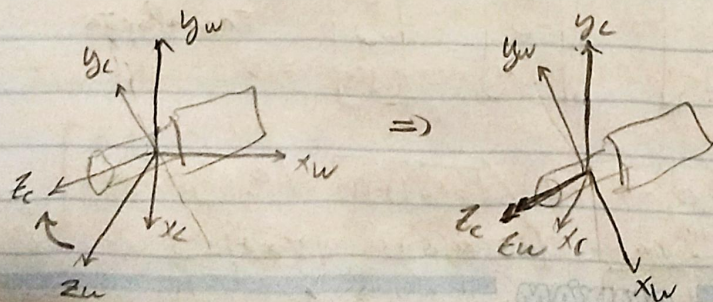 yw
yc
xw
zc
xc
zw
=>
yc
yw
zc
zw
xc
xw